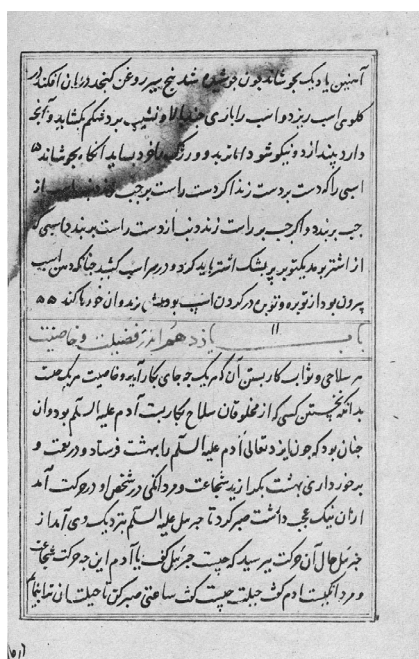 آهنین یا دیک بجوشاند چون جوشیده شد پنج سیر روغن کنجد در آن افکند در
کلوی اسب ریزد و اسب را باری چند بالا و نشیب برد شکم بکشاید و آنچه
دارد بیندازد و نیکو شود
اسبی را که دست بر دست زند اکر دست راست بر چپ زند
چپ برند و اکر چپ بر راست زند از دست راست برند و اسبی که
از اشتر بر مد یکتوبره پشک اشتر باید کرد و در سر اسب کشید چنانکه دهن اسب
بیرون بود از توبره و توبره در کردن اسب بود خو باز کند
باب ۱۱ یازدهم اندر فضیلت و خاصیت
هر سلاحی و ثواب کار بستن آن که هر یک چه جای بکار آید و خاصیت هر یک چیست
بدانکه نخستین کسی که از مخلوقان سلاح بکار بست آدم علیه السلم بود و آن
چنان بود که چون ایزد تعالی آدم علیه السلم را بهشت فرستاد و رفعت و
برخورداری بهشت بکدازید شجاعت و مردانکی در شخص او در حرکت آمد
از آن نیک عجب داشت صبر کرد تا جبرئیل علیه السلم بنزدیک وی آمد از
جبرئیل حال آن حرکت بپرسید که چیست جبرئیل کفت یا آدم این چه حرکت شجاعت
و مردانکیست آدم کفت حیلت چیست کفت ساعتی صبر کن تا حیلت آن بنمایم